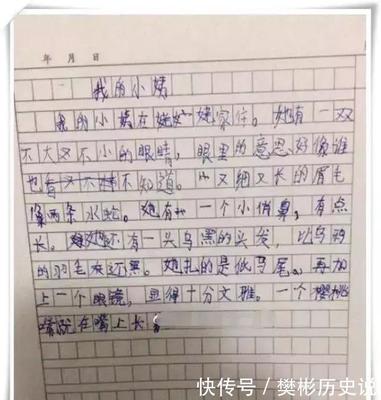 年 月 日
我的小姨
我的小姨在姥姥家住。她有一双
不大又不小的眼睛，眼里的意思好像谁
也看不知道。又细又长的眉毛
像两条水蛇。她有一个小俏鼻，有点
长。她还有一头乌黑的头发，比乌鸦
的羽毛灰还黑。她扎的是低马尾。再加
上一个眼镜，显得十分文雅。一个樱桃
嘴在嘴上长
快传号 / 樊彬历史说